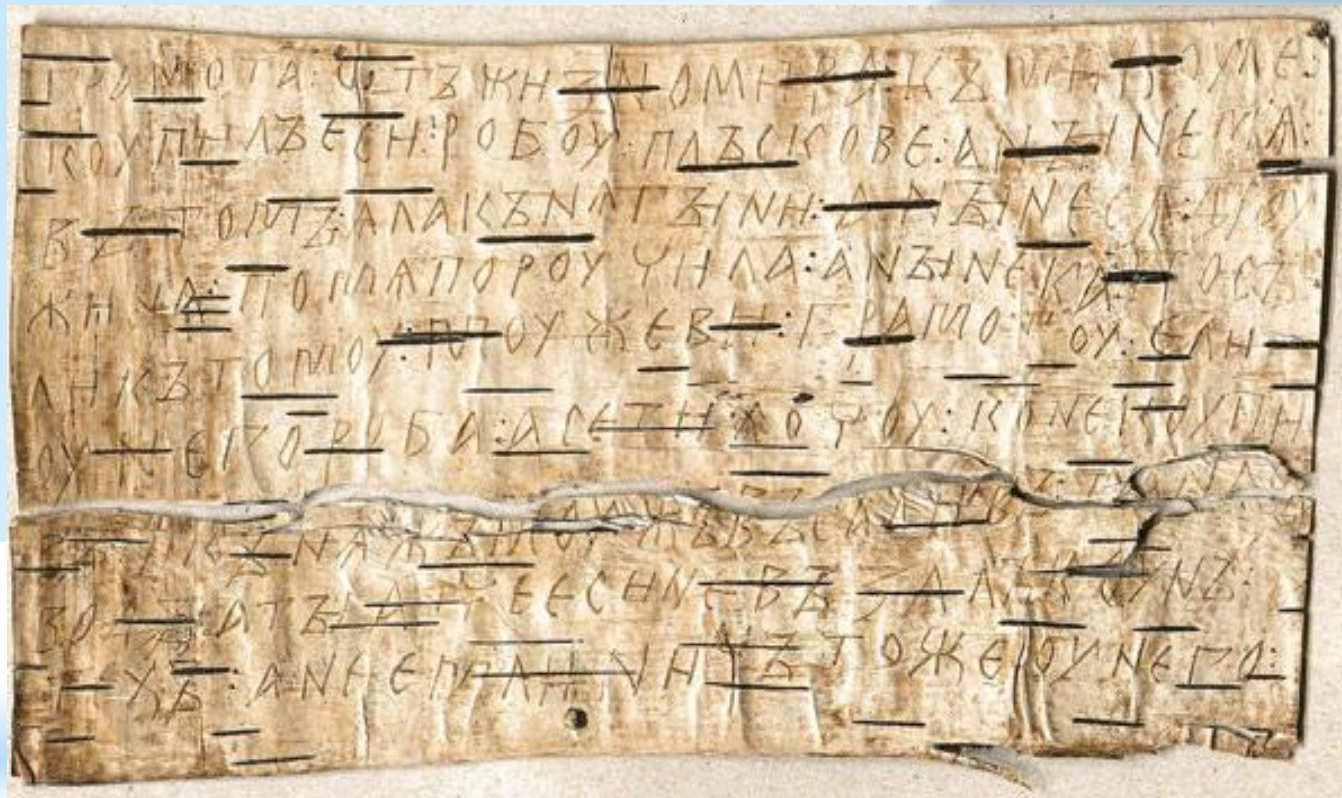 ГРАМОТА : ѠТЪ ЖИЗНОМИРА : КЪ МИКОУЛЕ :
КОУПИЛЪ ЕСИ : РОБОУ : ПЛЪСКОВЕ : А НЫНЕ МѦ :
ВЪ ТОМЪ : ѦЛА КЪНѦГЫНИ : А НЫНЕ СѦ ДРОУ
ЖИНА : ПО МѦ ПОРОУЧИЛА : А НЫНЕ КА : ПОСЪ
ЛИ КЪ ТОМОУ : МОУЖЕВИ : ГРАМОТОУ : ЕЛИ
ОУ НЕГО РОБА : А СЕ ТИ ХОЧОУ : КОНЕ КОУПИ
ВЪ : И КЪНѦЖЪ МОУЖЪ ВЪСАДИВЪ : ТА НА СЪ
ВОДЫ : А ТЫ АТЧЕ ЕСИ НЕ ВЪЗАЛЪ КОУНЪ :
ТѢХЪ : А НЕ ЕМЛИ : НИЧЪТО ЖЕ ОУ НЕГО :